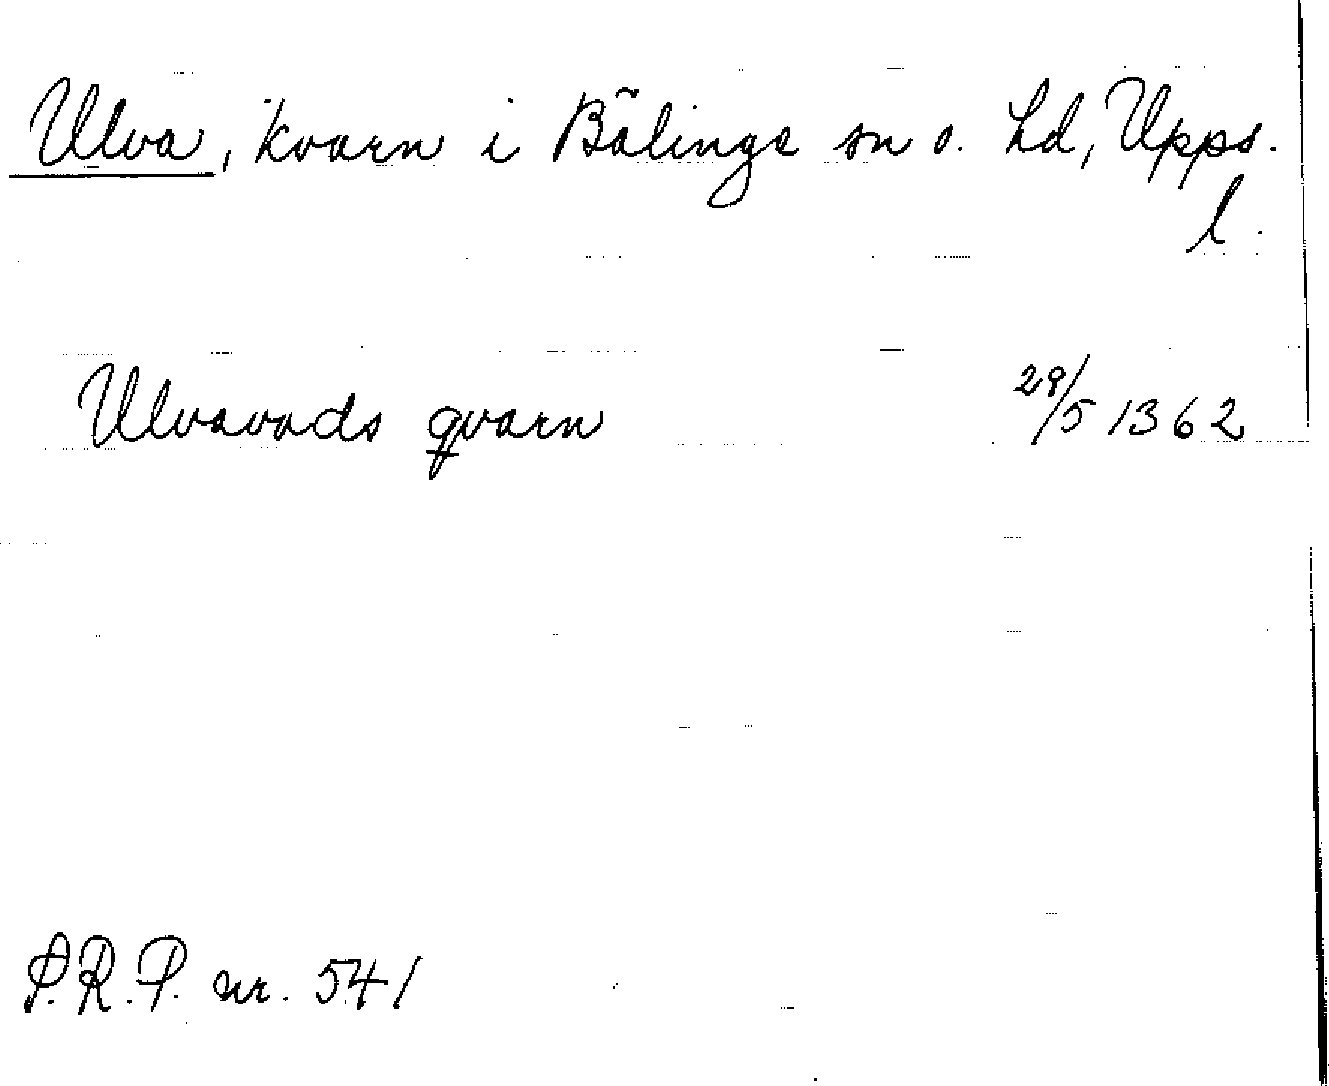 Ulva, kvarn i Bälinge sn o. hd, Upps.
l.
Ulvavads qvarn 28/5 1362
S.R.P. nr. 541